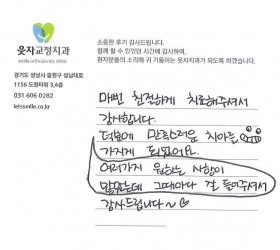 웃자교정치과
경기도 성남시 중원구 성남대로
1156 도원타워 3,4층
031 606 0282
letssmile.co.kr
소중한 후기 감사드립니다.
함께 할 수 있었던 시간에 감사하며,
환자분들의 소리에 귀 기울이는 웃자치과가 되도록 하겠습니다.
매번 친절하게 치료해주셔서
감사합니다.
덕분에 만족스러운 치아를
가지게 되었어요.
여러가지 원하는 사항이
많았는데 그때마다 잘 들어주셔서
감사드립니다~♡